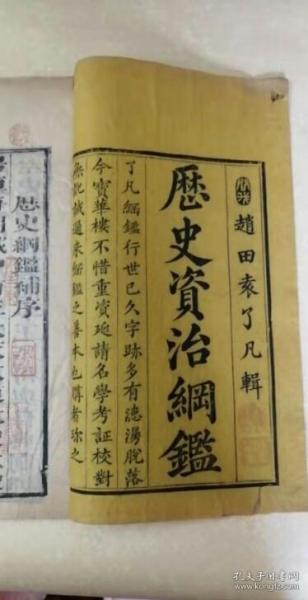 趙田袁了凡輯
歷史資治綱鑑
了凡綱鑑行世已久字跡多有漶漫脫落
今寶華樓不惜重資延請名學考証校對
無訛誠邇來綱鑑之善本也購者珍之
歷史綱鑑補序
孔夫子旧书网